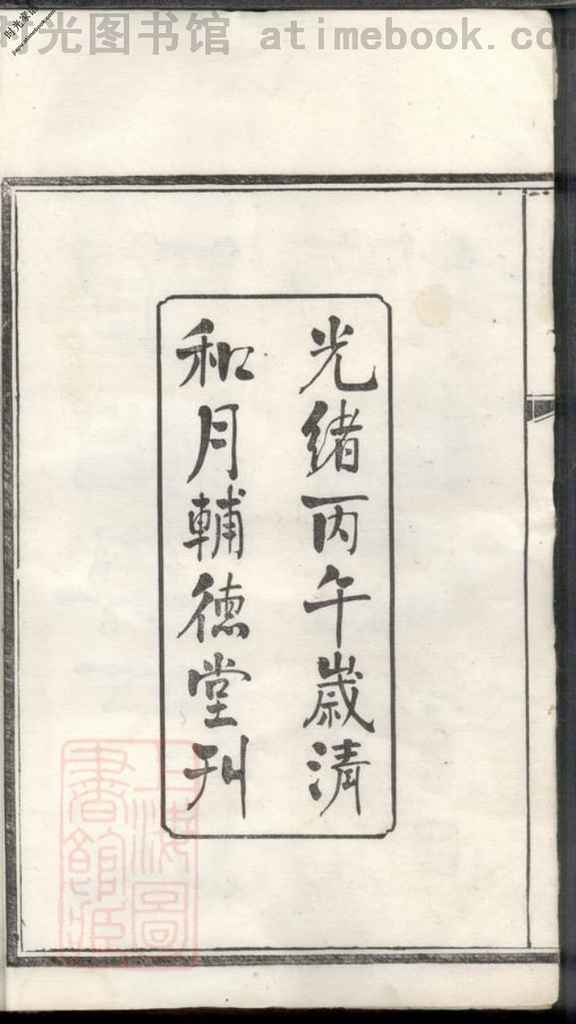 时光图书馆 atimebook.com
光緒丙午歲清
和月輔德堂刊
上海圖
書館藏